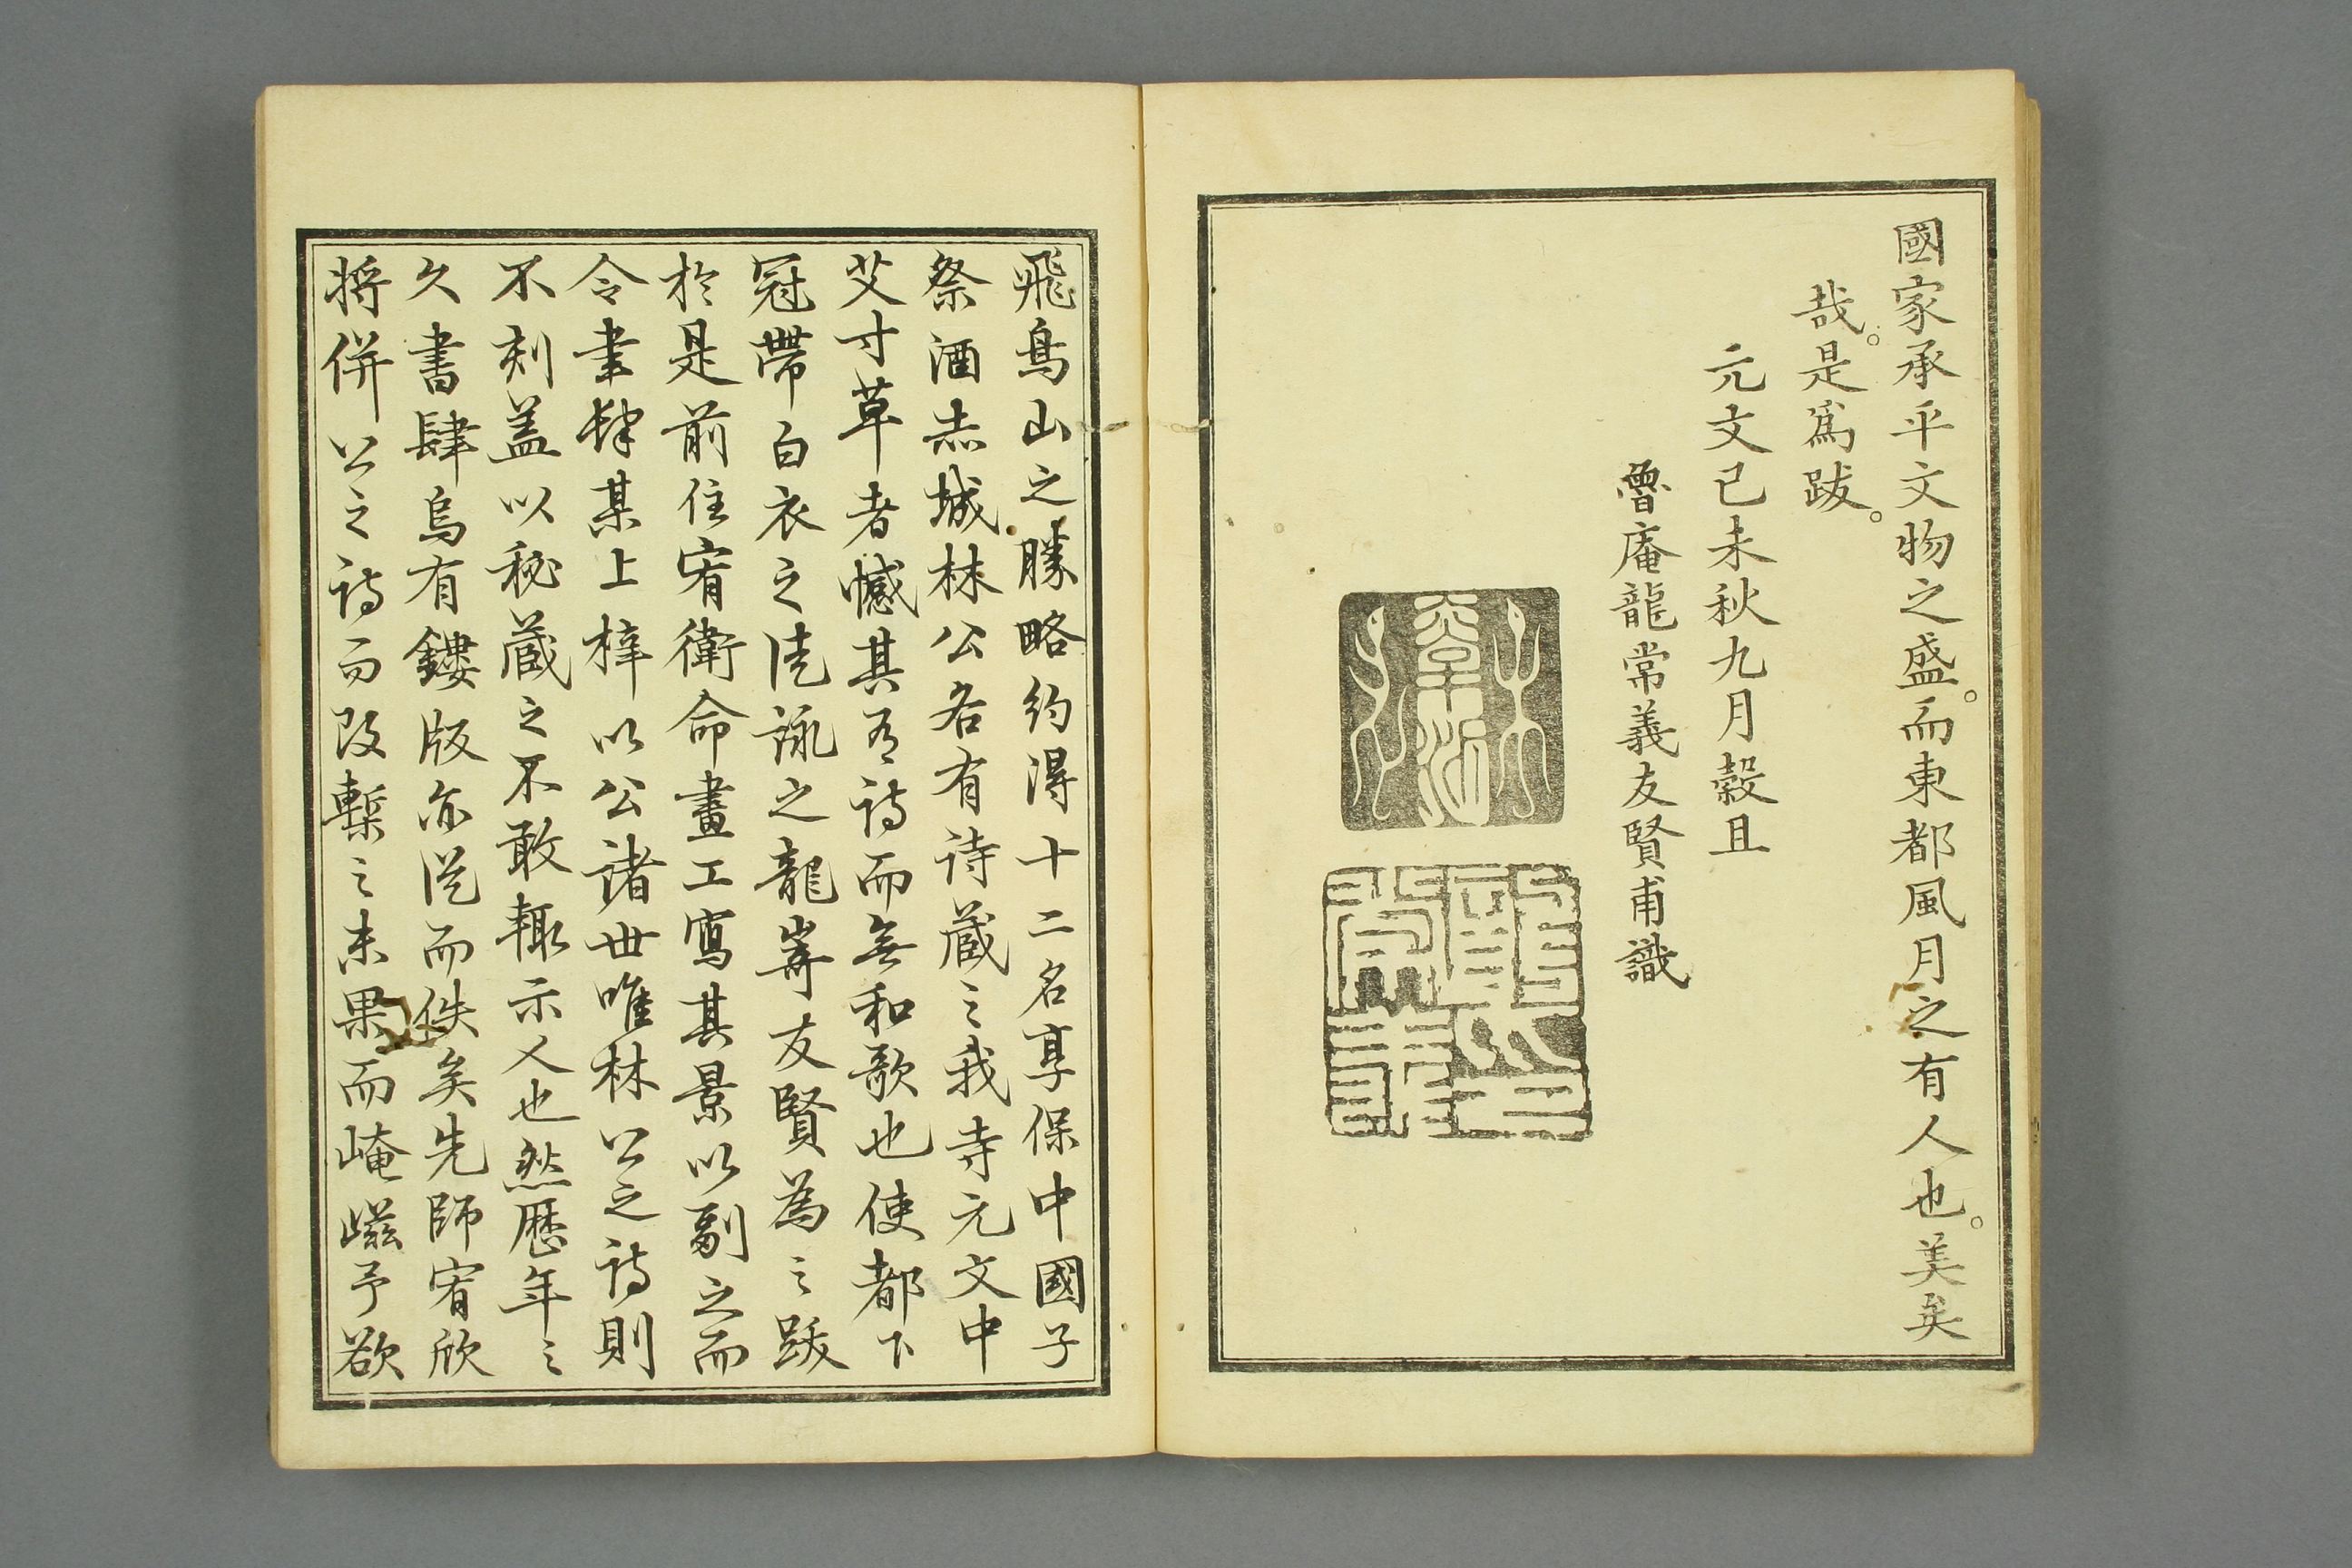 國家承平文物之盛。而東都風月之有人也。美矣
哉。是爲跋。
元文己未秋九月穀旦
魯庵龍常義友賢甫識
飛鳥山之勝略約得十二名享保中國子
祭酒赤城林公各有詩蔵之我寺元文中
艾寸草者憾其有詩而無和歌也使都下
冠帶白衣之徒詠之龍嵜友賢為之跋
於是前住宥衛命畫工寫其景以副之而
令書肆某上梓以公諸世唯林公之詩則
不刻盖以秘蔵之不敢輙示人也然歴年之
久書肆烏有鏤版亦従而佚矣先師宥欣
将併公之詩而改槧之未果而崦嵫予欲